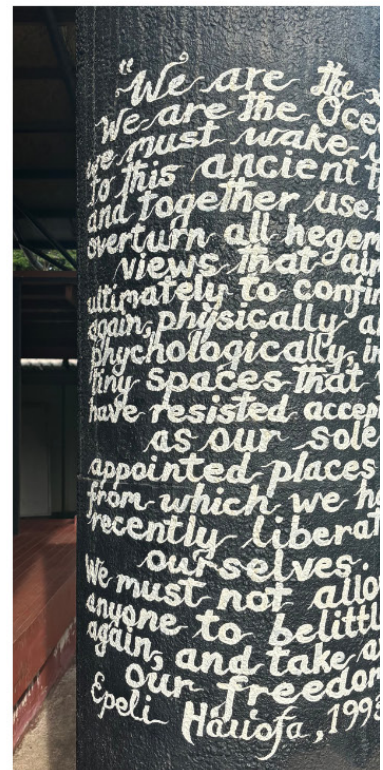 "We are the
We are the Oce
we must wake
to this ancient
and together use
overturn all hegem
views that aim
ultimately to confin
again, physically a
phychologically, in
tiny spaces that
have resisted accep
as our sole
appointed places
from which we ha
recently liberat
ourselves.
We must not allo
anyone to belittl
again, and take a
our freedom
Epeli Hauʻofa, 1993